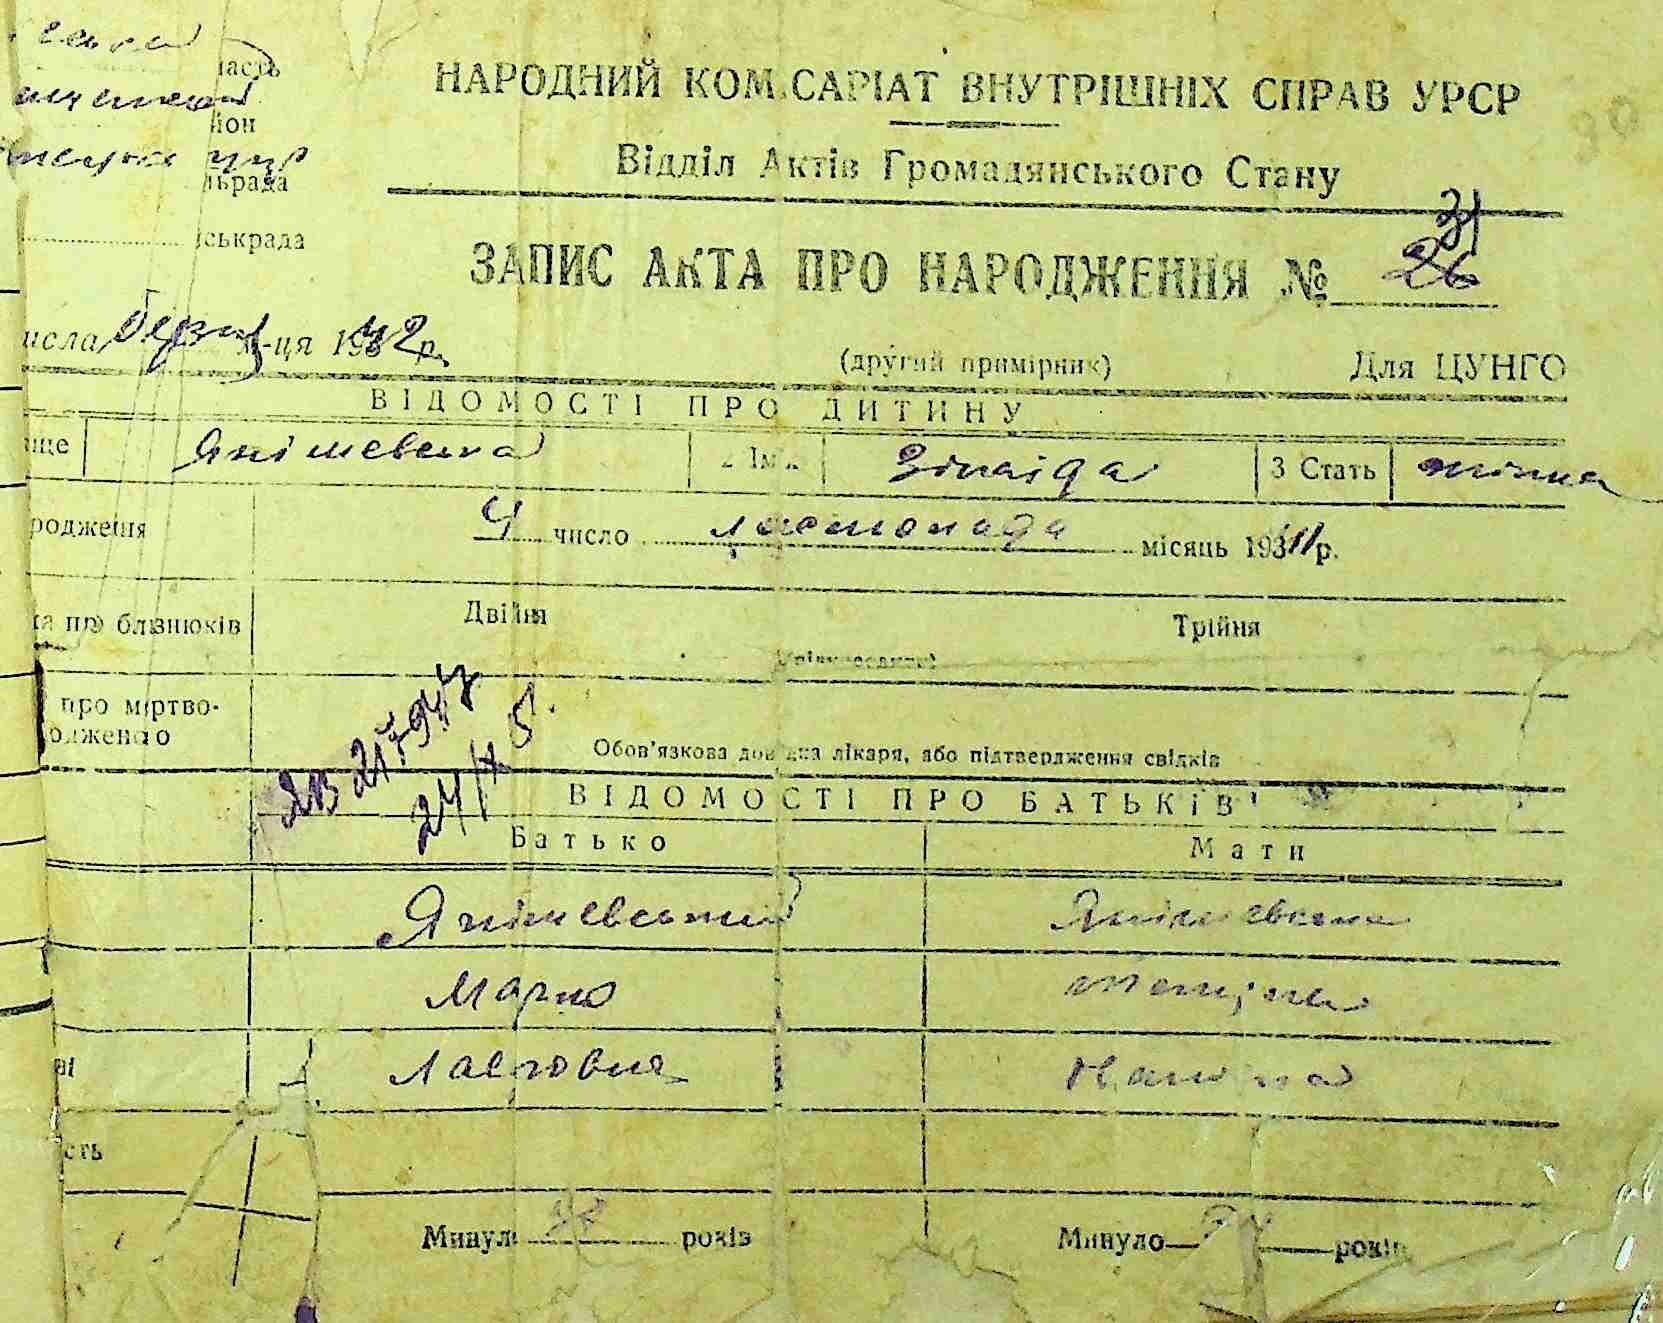 ласть
йон
льрада
ськрада
НАРОДНИЙ КОМ САРІАТ ВНУТРІШНІХ СПРАВ УРСР
Відділ Актів Громадянського Стану
31
ЗАПИС АКТА ПРО НАРОДЖЕННЯ № 26
исла м-ця 1942 р.
(другий примірник) Для ЦУНГО
ВІДОМОСТІ ПРО ДИТИНУ
ще Янішевська 2 Ім'я Зінаїда 3 Стать жінка
родження 4 число листопада місяць 1941 р.
ка про близнюків Двійня Трійня
про мертво-
родженого
Обов'язкова довідка лікаря, або підтвердження свідків
ЯВ 217947
24/X 5
ВІДОМОСТІ ПРО БАТЬКІВ
Батько Мати
Янішевський Янішевська
Марко
Лаврович Іванівна
ові
ість
Минуло років Минуло років